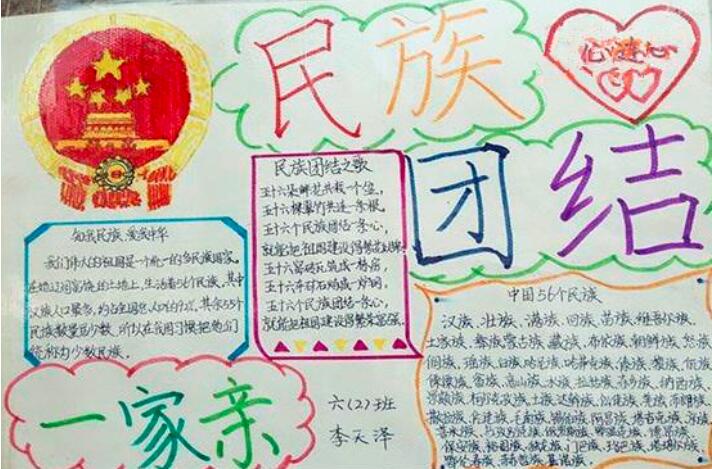 民族
心连心
团结
民族团结之歌
五十六朵鲜花共栽一个盆,
五十六棵翠竹共连一条根,
五十六个民族团结一条心,
就能把祖国建设得繁荣
五十六窑砖瓦筑成一栋房,
五十六个民族团结一条心,
就能把祖国建设得繁荣富强。
知我民族、爱我中华
我们伟大的祖国是一个统一的多民族国家。
在地辽阔富饶的土地上,生活着56个民族,其中
汉族人口最多,约占全国总人口的92%。其余55个
民族数量名少数,所以在我国习惯把他们
统称为少数民族。
中国56个民族
汉族、壮族、满族、回族、苗族、维吾尔族、
土家族、彝族、蒙古族、藏族、布依族、朝鲜族、怒族、
侗族、瑶族、白族、哈尼族、哈萨克族、傣族、黎族、
族、畲族、高山族、水族、拉祜族、东乡族、纳西族、
景颇族、柯尔克孜族、土族、达斡尔族、仫佬族、羌族、
撒拉族、毛南族、仡佬族、阿昌族、塔吉克族、
保安族、裕固族、门巴族、
鄂伦春族、赫哲族、基诺族。
一家亲
六(2)班
李天泽